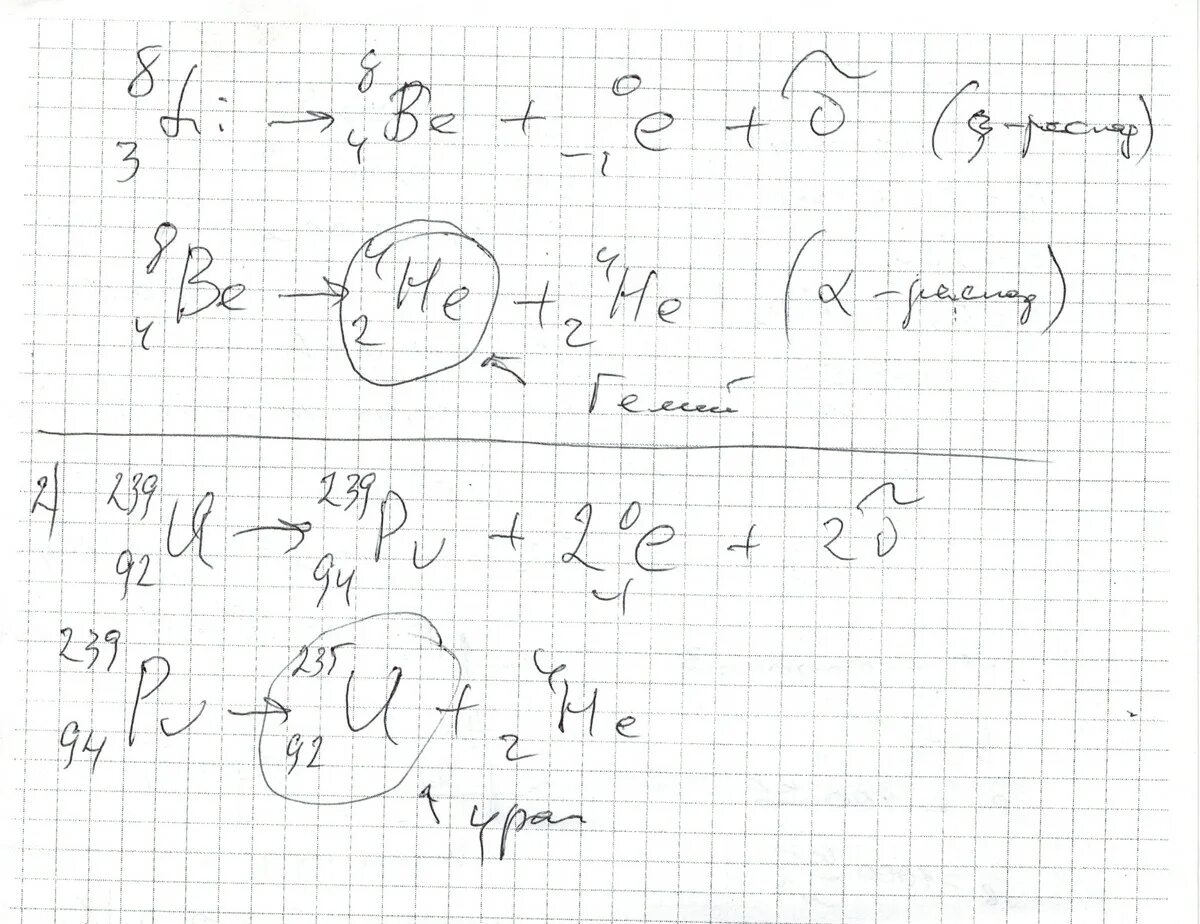 ⁸₃Li → ⁸₄Be + ⁰₋₁e + ν̃ (β-распад)
⁸₄Be → ⁴₂He + ⁴₂He (α-распад)
Гелий
2) ²³⁹₉₂U → ²³⁹₉₄Pu + 2⁰₋₁e + 2ν̃
²³⁹₉₄Pu → ²³⁵₉₂U + ⁴₂He
уран